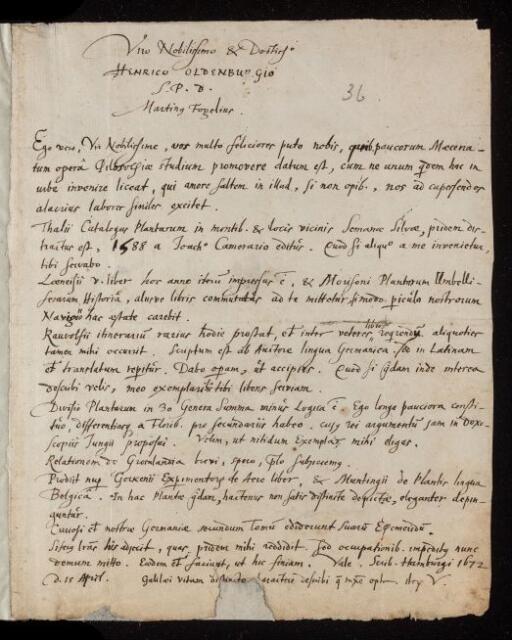 Viro Nobilissimo & Doctiss°
HENRICO OLDENBURGIO
S. P. D.
Martinus Fogelius.
36
Ego vero, Vir Nobilissime, vos multo feliciores puto nobis, quib. paucorum Mæcena-
tum operâ Philosophiæ studium promovere datum est, cum ne unum qdem hac in
urbe invenire liceat, qui amore saltem in illud, si non opib., nos ad capessendos
alacrius labores similes excitet.
Thalii Catalogus Plantarum in montib. & locis vicinis Semanæ Silvæ, pridem dis-
tractus est, 1588 a Joach° Camerario editus. Quod si aliquo a me invenietur,
tibi servabo.
v. liber hoc anno iterum impressus ē, & Morisoni Plantarum Umbelli-
ferarum Historiâ, aliisve libris commutatus ad te mittetur, si modo pericula nostrorum
Navigiis hac æstate carebit.
Rauwolfii itinerarium rarius hodie prostat, et inter veteres libros aliquoties
tamen mihi occurit. Scriptum est ab Auctore lingua Germanica, in Latinam
et translatum reperitur. Dabo operam, ut accipias. Quod si qdam inde interea
describi velis, meo exemplari tibi libens serviam.
Divisio Plantarum in 30 Genera Summa minus Logica ē. Ego longe pauciora consti-
tuo, a Florib. pro secundariis habeo. cujus rei argumentum jam in Doxo-
scopiis Jungii proposui. Velim, ut nitidum Exemplar mihi elegas.
Relationem de Groenlandia brevi, spero,
Prodiit nup Gerickenii Experimentorum de Aere liber, & Muntingii de Plantis lingua
Belgica. In hac Plantæ qdam, hactenus non satis distincte depictæ, eleganter depin-
guntur.
Curiosi et nostræ Germaniæ secundum Tomum ediderunt Suarum Ephemeridum.
literas his adjecit, quas pridem mihi reddidit. Sed occupationib. impeditus nunc
demum mitto. Eædem et faciunt, ut hic finiam. Vale. Scrib. Hamburgi 1672
d. 15 April. Galilæi vitam describi opto. V.